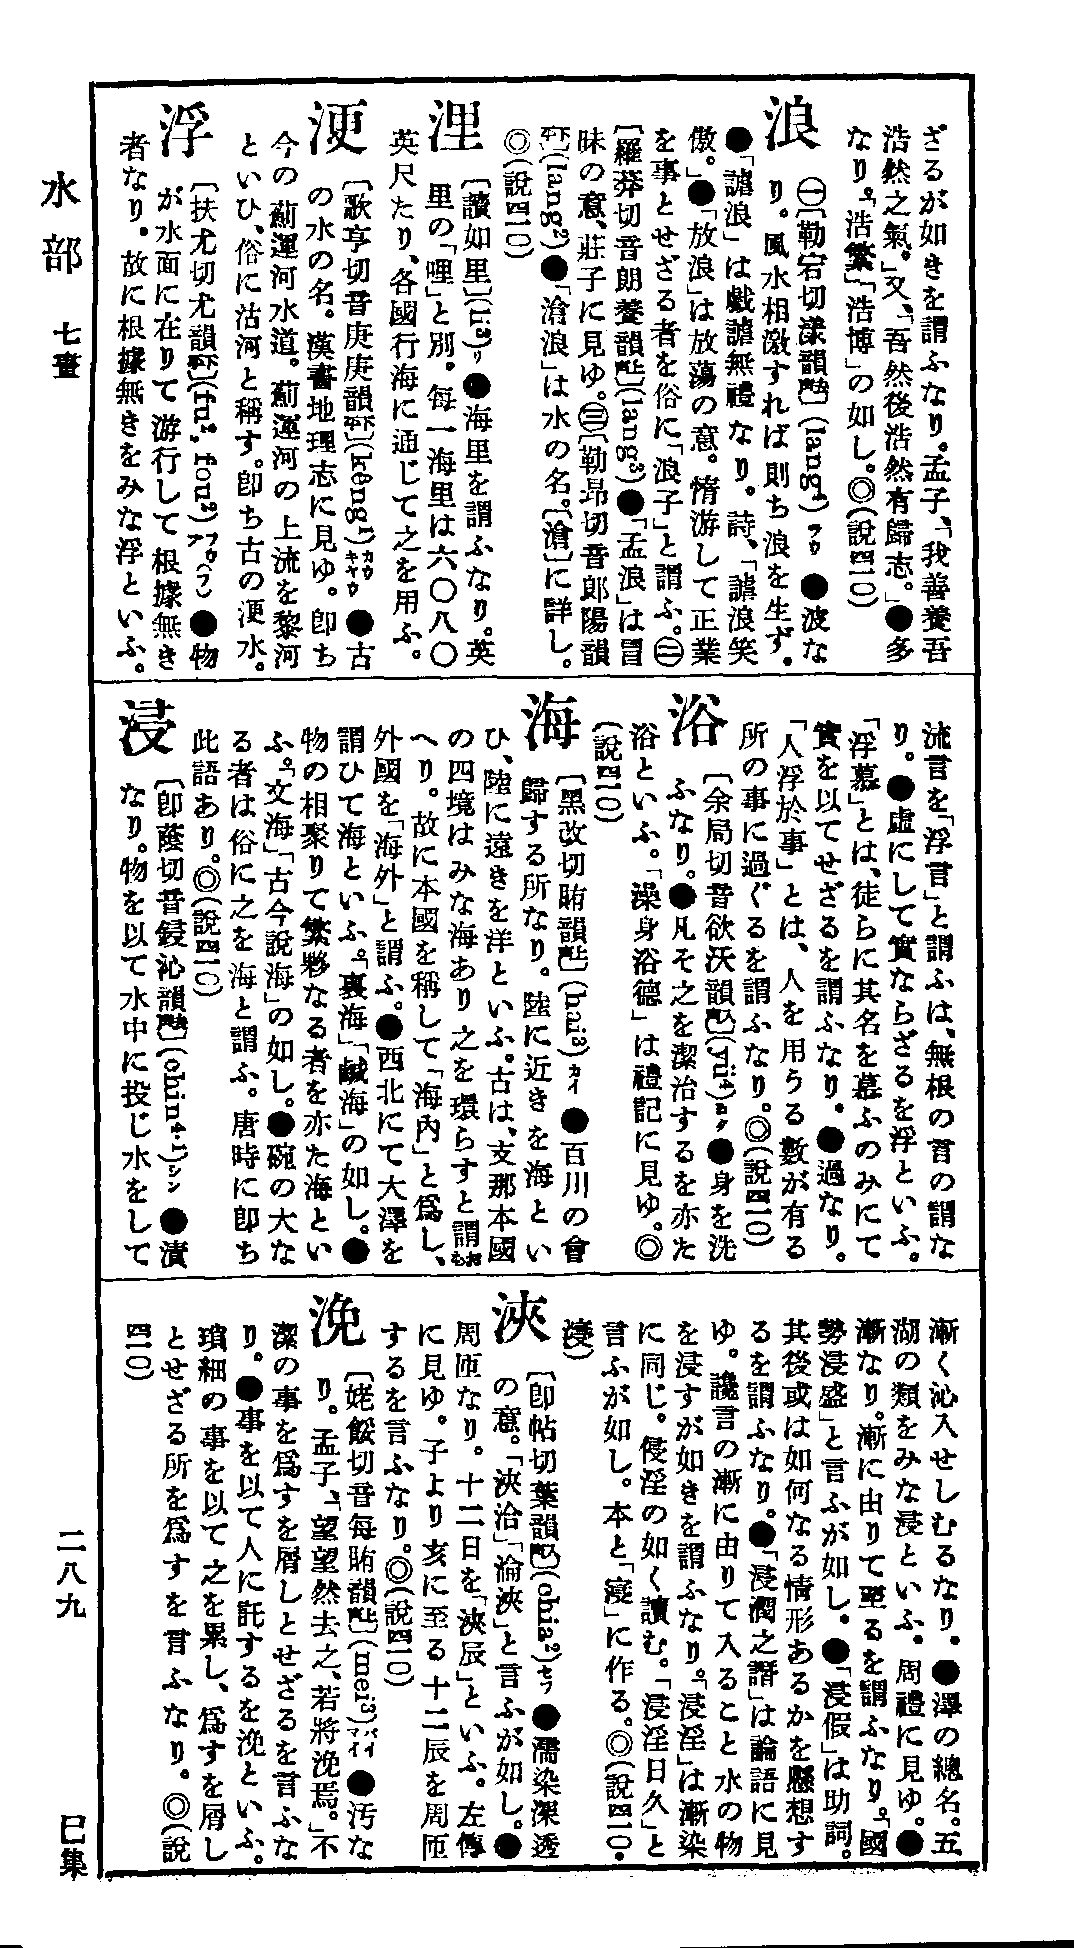 ざるが如きを謂ふなり。孟子、「我善養吾
浩然之氣。」又、「吾然後浩然有歸志。」●多
なり。「浩繁」「浩博」の如し。◎(說四一〇)
浪
㊀〔勒宕切漾韻〕(lang⁴)ラウ ●波な
り。風水相激すれば則ち浪を生ず。
●「謔浪」は戲謔無禮なり。詩、「謔浪笑
傲。」●「放浪」は放蕩の意。惰游して正業
を事とせざる者を俗に「浪子」と謂ふ。㊁
〔羅莽切音朗養韻〕(lang³)●「孟浪」は冒
昧の意、莊子に見ゆ。㊂〔勒昂切音郎陽韻
〕(lang²)●「滄浪」は水の名。〔滄〕に詳し。
◎(說四一〇)
浬
〔讀如里〕(li³)リ ●海里を謂ふなり。英
里の「哩」と別。每一海里は六〇八〇
英尺たり、各國行海に通じて之を用ふ。
浭
〔歌亨切音庚庚韻〕(kêng¹)カウ キヤウ ●古
の水の名。漢書地理志に見ゆ。卽ち
今の薊運河水道。薊運河の上流を黎河
といひ、俗に沽河と稱す。卽ち古の浭水。
浮
〔扶尤切尤韻〕(fu², fou²)フウ(フ) ●物
が水面に在りて游行して根據無き
者なり。故に根據無きをみな浮といふ。
流言を「浮言」と謂ふは、無根の言の謂な
り。●虛にして實ならざるを浮といふ。
「浮慕」とは、徒らに其名を慕ふのみにて
實を以てせざるを謂ふなり。●過なり。
「人浮於事」とは、人を用うる數が有る
所の事に過ぐるを謂ふなり。◎(說四一〇)
浴
〔余局切音欲沃韻〕(yü⁴)ヨク ●身を洗
ふなり。●凡そ之を潔治するを亦た
浴といふ。「澡身浴德」は禮記に見ゆ。◎
(說四一〇)
海
〔黑改切賄韻〕(hai³)カイ ●百川の會
歸する所なり。陸に近きを海とい
ひ、陸に遠きを洋といふ。古は、支那本國
の四境はみな海あり之を環らすと謂
へり。故に本國を稱して「海內」と爲し、
外國を「海外」と謂ふ。●西北にて大澤を
謂ひて海といふ。「裏海」「鹹海」の如し。●
物の相聚りて繁夥なる者を亦た海とい
ふ。「文海」「古今說海」の如し。●碗の大な
る者は俗に之を海と謂ふ。唐時に卽ち
此語あり。◎(說四一〇)
浸
〔卽蔭切音祲沁韻〕(chin⁴·¹)シン ●漬
なり。物を以て水中に投じ水をして
漸く沁入せしむるなり。●澤の總名。五
湖の類をみな浸といふ。周禮に見ゆ。●
漸なり。漸に由りて至るを謂ふなり。「國
勢浸盛」と言ふが如し。●「浸假」は助詞。
其後或は如何なる情形あるかを懸想す
るを謂ふなり。●「浸潤之譖」は論語に見
ゆ。讒言の漸に由りて入ること水の物
を浸すが如きを謂ふなり。「浸淫」は漸染
に同じ。侵淫の如く讀む。「浸淫日久」と
言ふが如し。本と「寖」に作る。◎(說四一〇·
浸)
浹
〔卽帖切葉韻〕(chia²)セフ ●濡染深透
の意。「浹洽」「淪浹」と言ふが如し。●
周匝なり。十二日を「浹辰」といふ。左傳
に見ゆ。子より亥に至る十二辰を周匝
するを言ふなり。◎(說四一〇)
浼
〔姥餒切音每賄韻〕(mei³)バイ マイ ●汚な
り。孟子、「望望然去之、若將浼焉。」不
潔の事を爲すを屑しとせざるを言ふな
り。●事を以て人に託するを浼といふ。
瑣細の事を以て之を累し、爲すを屑し
とせざる所を爲すを言ふなり。◎(說
四一〇)
水部 七畫
二八九
巳集